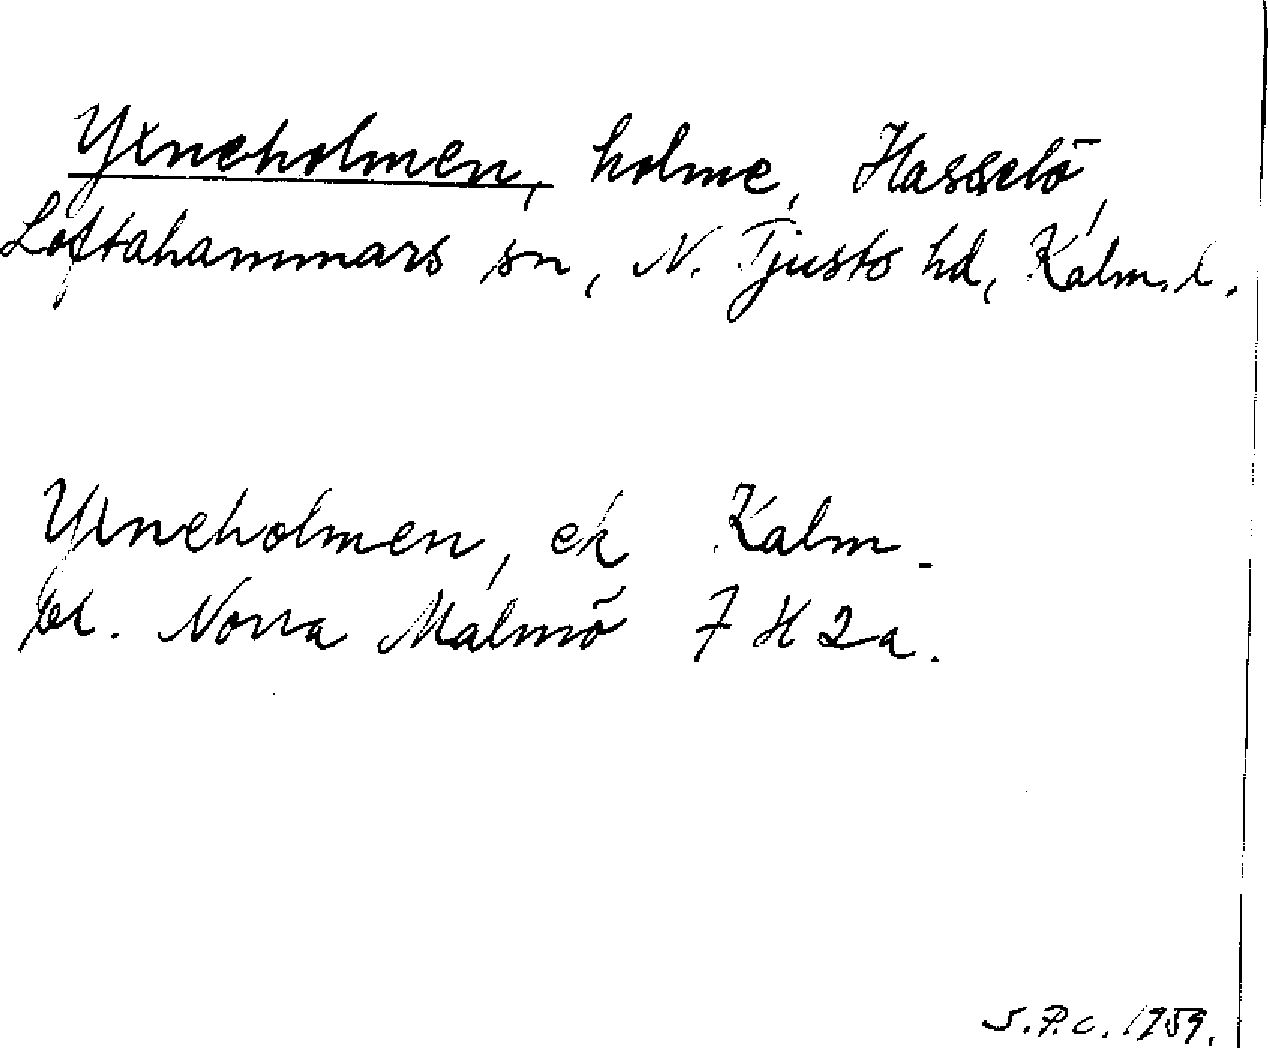 Yxneholmen, holme, Hasselö,
Loftahammars sn, N. Tjusts hd, Kalm. l.
Yxneholmen, ek Kalm.
bl. Norra Malmö 7 H 2a.
S.P.C. 1959.